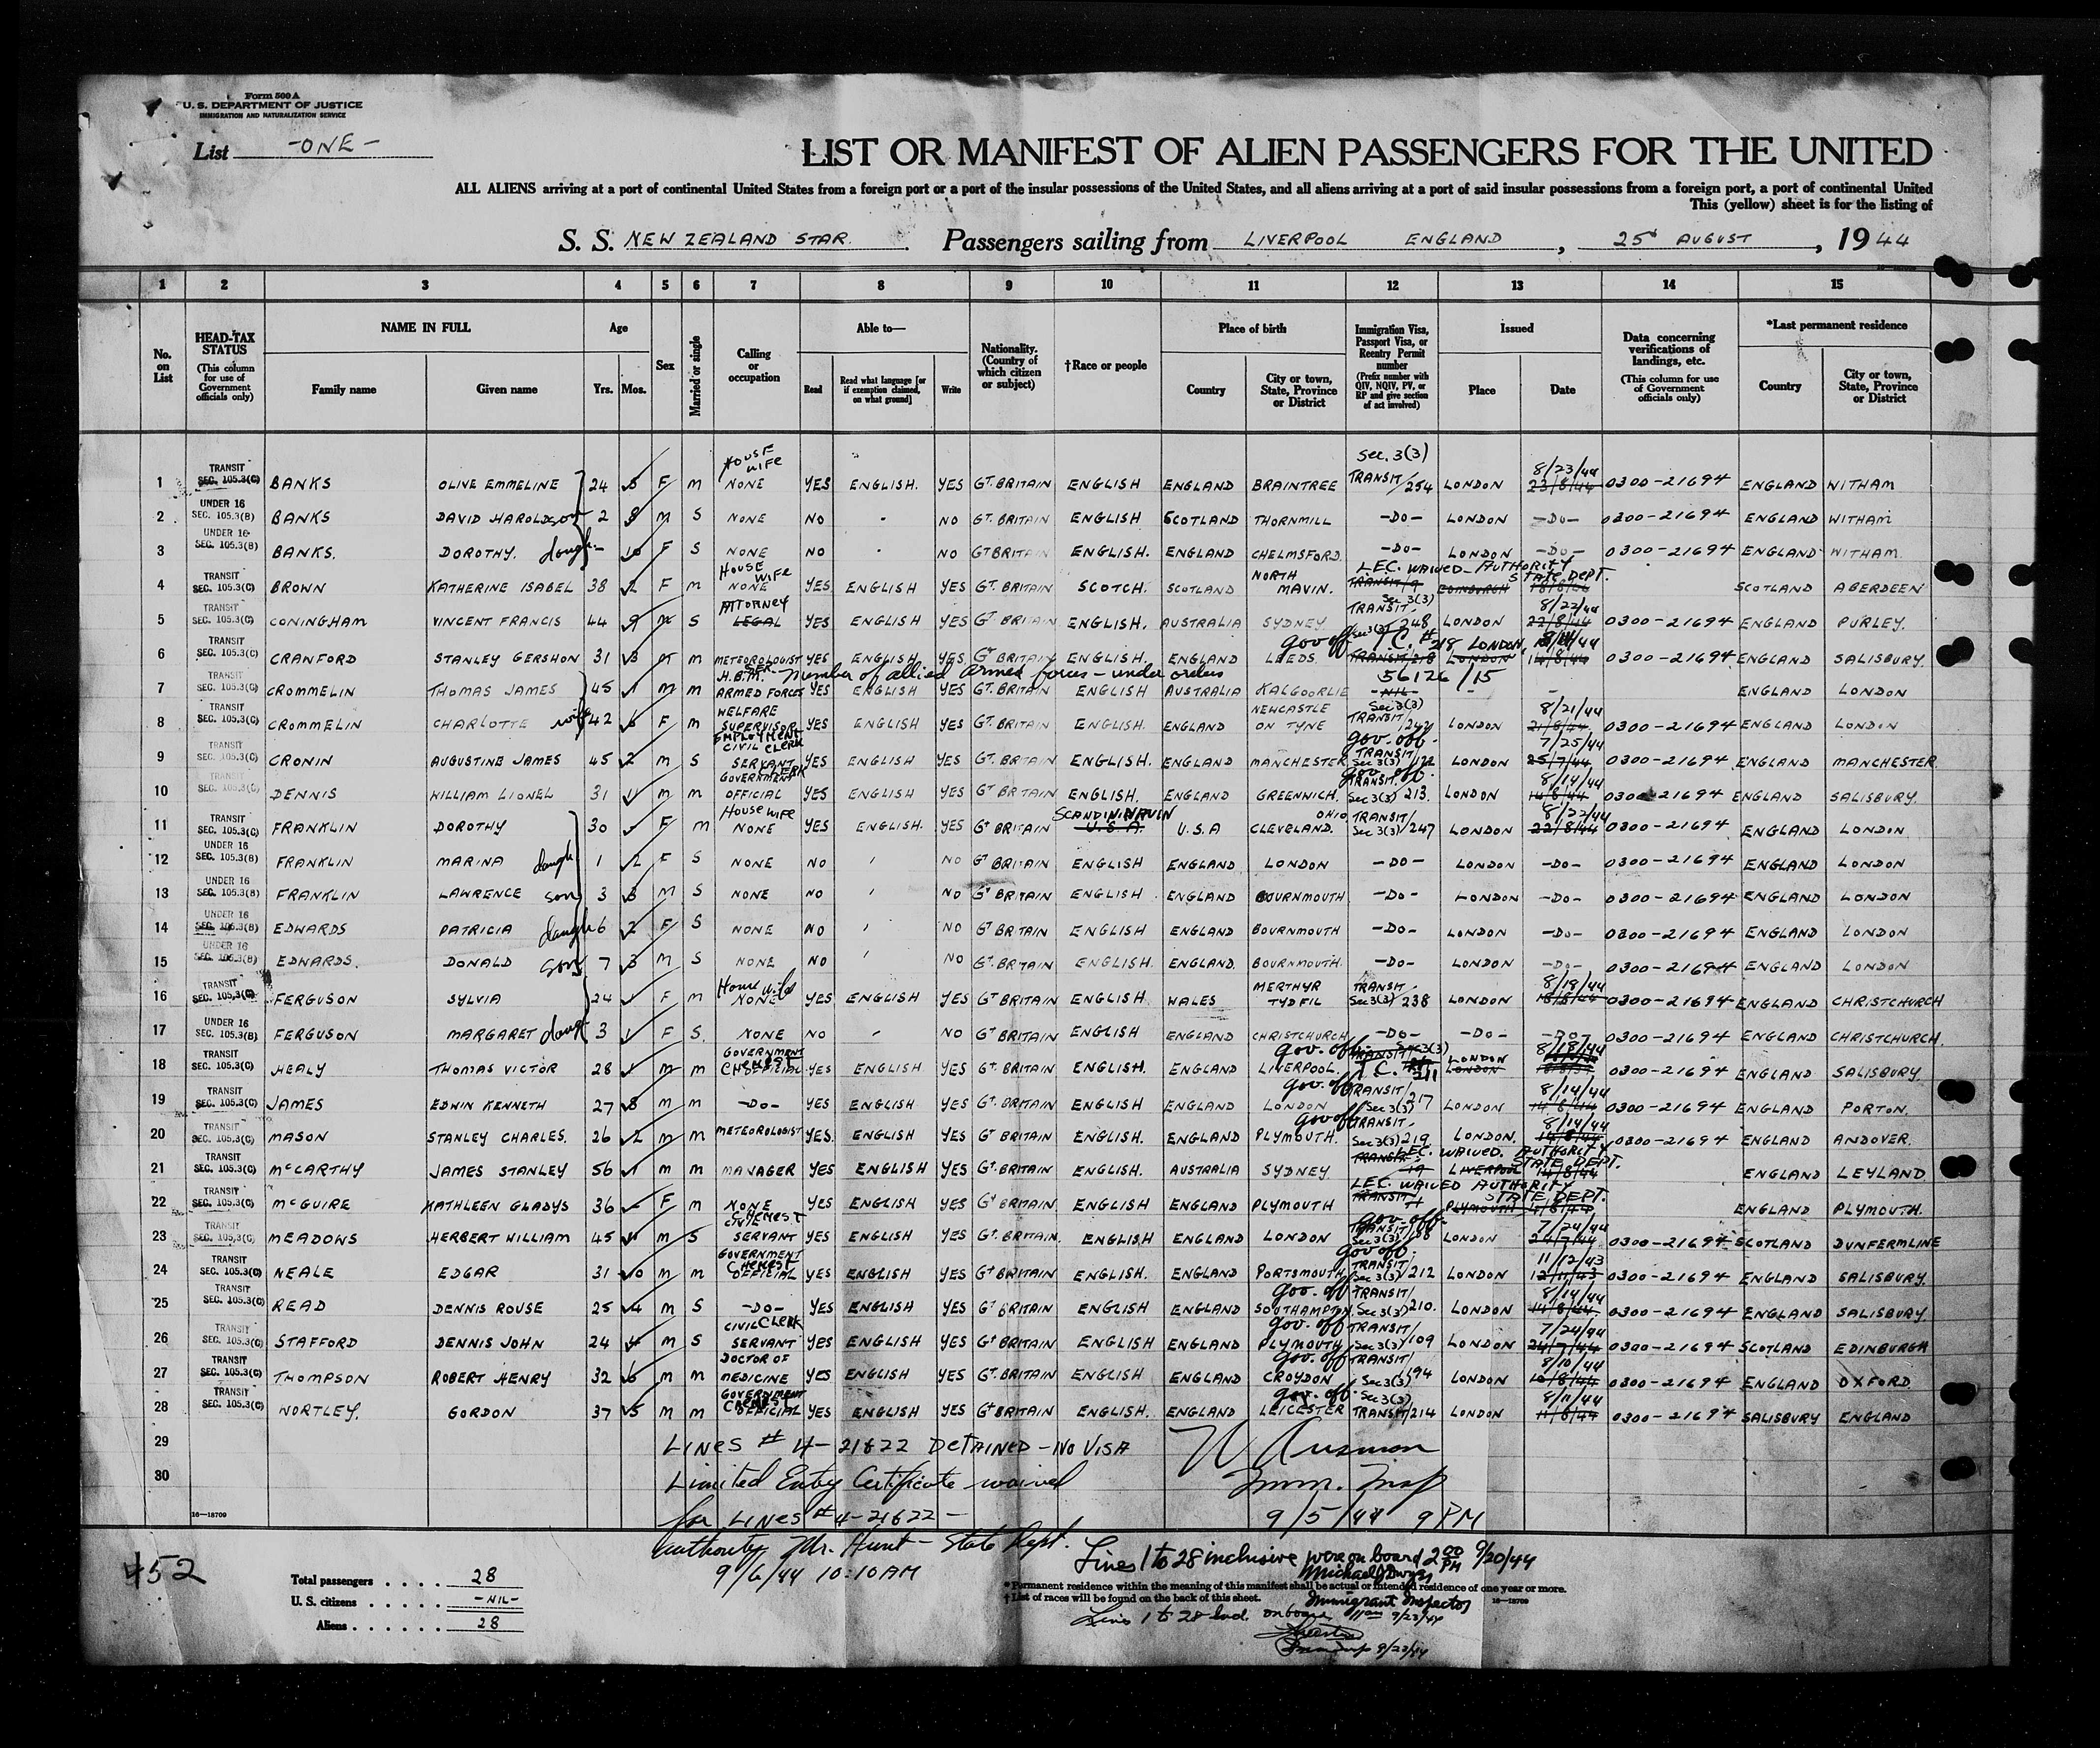 Form 500 A
U. S. DEPARTMENT OF JUSTICE
IMMIGRATION AND NATURALIZATION SERVICE
List -ONE-
LIST OR MANIFEST OF ALIEN PASSENGERS FOR THE UNITED
ALL ALIENS arriving at a port of continental United States from a foreign port or a port of the insular possessions of the United States, and all aliens arriving at a port of said insular possessions from a foreign port, a port of continental United
This (yellow) sheet is for the listing of
S. S. NEW ZEALAND STAR. Passengers sailing from LIVERPOOL ENGLAND, 25th AUGUST, 1944
1 2 3 4 5 6 7 8 9 10 11 12 13 14 15
No. on List
HEAD-TAX STATUS (This column for use of Government officials only)
NAME IN FULL Family name Given name
Age Yrs. Mos.
Sex
Married or single
Calling or occupation
Able to— Read Read what language [or if exemption claimed, on what ground] Write
Nationality. (Country of which citizen or subject)
†Race or people
Place of birth Country City or town, State, Province or District
Immigration Visa, Passport Visa, or Reentry Permit number (Prefix number with QIV, NQIV, PV, or RP and give section of act involved)
Issued Place Date
Data concerning verifications of landings, etc. (This column for use of Government officials only)
*Last permanent residence Country City or town, State, Province or District
1 TRANSIT SEC. 105.3(C) BANKS OLIVE EMMELINE 24 5 F M HOUSE WIFE NONE YES ENGLISH. YES GT. BRITAIN ENGLISH ENGLAND BRAINTREE Sec. 3(3) TRANSIT/254 LONDON 8/23/44 23/8/44 0300-21694 ENGLAND WITHAM
2 UNDER 16 SEC. 105.3(B) BANKS DAVID HAROLD son 2 8 M S NONE NO - NO GT. BRITAIN ENGLISH SCOTLAND THORNMILL -DO- LONDON -DO- 0300-21694 ENGLAND WITHAM
3 UNDER 16 SEC. 105.3(B) BANKS. DOROTHY. daugh - 10 F S NONE NO - NO GT BRITAIN ENGLISH. ENGLAND CHELMSFORD. -DO- LONDON -DO- 0300-21694 ENGLAND WITHAM.
4 TRANSIT SEC. 105.3(C) BROWN KATHERINE ISABEL 38 2 F M HOUSE WIFE NONE YES ENGLISH YES GT. BRITAIN SCOTCH. SCOTLAND NORTH MAVIN. LEC. WAIVED-AUTHORITY STATE DEPT. TRANSIT/9 EDINBURGH SCOTLAND ABERDEEN
5 TRANSIT SEC. 105.3(C) CONINGHAM VINCENT FRANCIS 44 9 M S ATTORNEY LEGAL YES ENGLISH YES GT BRITAIN ENGLISH. AUSTRALIA SYDNEY Sec 3(3) TRANSIT 248 LONDON 8/22/44 22/8/44 0300-21694 ENGLAND PURLEY.
6 TRANSIT SEC. 105.3(C) CRANFORD STANLEY GERSHON 31 3 M M METEOROLOGIST YES ENGLISH YES GT BRITAIN ENGLISH. ENGLAND LEEDS. gov off Sec 3(3) T.C. # 218 LONDON, 8/14/44 TRANSIT/218 LONDON 14/8/44 0300-21694 ENGLAND SALISBURY.
7 TRANSIT SEC. 105.3(C) CROMMELIN THOMAS JAMES 45 1 M M H.B.M. SER. ARMED FORCES Member of allied armed forces - under orders YES ENGLISH YES GT. BRITAIN ENGLISH AUSTRALIA KALGOORLIE 56126/15 -NIL- - - ENGLAND LONDON
8 TRANSIT SEC. 105.3(C) CROMMELIN CHARLOTTE wife 42 6 F M WELFARE SUPERVISOR YES ENGLISH YES GT. BRITAIN ENGLISH. ENGLAND NEWCASTLE ON TYNE Sec 3(3) TRANSIT/242 LONDON 8/21/44 21/8/44 0300-21694 ENGLAND LONDON
9 TRANSIT SEC. 105.3(C) CRONIN AUGUSTINE JAMES 45 2 M S EMPLOYMENT CLERK CIVIL SERVANT YES ENGLISH YES GT. BRITAIN ENGLISH. ENGLAND MANCHESTER gov. off. TRANSIT/ Sec 3(3) 122 LONDON 7/25/44 25/7/44 0300-21694 ENGLAND MANCHESTER.
10 TRANSIT SEC. 105.3(C) DENNIS WILLIAM LIONEL 31 11 M M CLERK GOVERNMENT OFFICIAL YES ENGLISH YES GT BRITAIN ENGLISH. ENGLAND GREENWICH. gov. off. TRANSIT. Sec 3(3) 213. LONDON 8/14/44 14/8/44 0300-21694 ENGLAND SALISBURY.
11 TRANSIT SEC. 105.3(C) FRANKLIN DOROTHY 30 - F M House wife NONE YES ENGLISH. YES GT BRITAIN SCANDINAVIN U.S.A. U.S.A CLEVELAND. OHIO TRANSIT/ Sec 3(3) 247 LONDON 8/22/44 22/8/44 0300-21694 ENGLAND LONDON
12 UNDER 16 SEC. 105.3(B) FRANKLIN MARINA daugh 1 2 F S NONE NO NO GT BRITAIN ENGLISH ENGLAND LONDON -DO- LONDON -DO- 0300-21694 ENGLAND LONDON
13 UNDER 16 SEC. 105.3(B) FRANKLIN LAWRENCE son 3 3 M S NONE NO NO GT BRITAIN ENGLISH ENGLAND BOURNMOUTH -DO- LONDON -DO- 0300-21694 ENGLAND LONDON
14 UNDER 16 SEC. 105.3(B) EDWARDS PATRICIA daugh 6 2 F S NONE NO NO GT BRITAIN ENGLISH ENGLAND BOURNMOUTH -DO- LONDON -DO- 0300-21694 ENGLAND LONDON
15 UNDER 16 SEC. 105.3(B) EDWARDS. DONALD son 7 3 M S NONE NO NO GT. BRITAIN ENGLISH. ENGLAND. BOURNMOUTH. -DO- LONDON -DO- 0300-21694 ENGLAND LONDON
16 TRANSIT SEC. 105.3(C) FERGUSON SYLVIA 24 - F M House wife NONE YES ENGLISH YES GT BRITAIN ENGLISH WALES MERTHYR TYDFIL TRANSIT. Sec 3(3) 238 LONDON 8/18/44 18/8/44 0300-21694 ENGLAND CHRISTCHURCH
17 UNDER 16 SEC. 105.3(B) FERGUSON MARGARET daugh 3 1 F S. NONE NO - NO GT BRITAIN ENGLISH ENGLAND CHRISTCHURCH. -DO- -DO- -DO- 0300-21694 ENGLAND CHRISTCHURCH.
18 TRANSIT SEC. 105.3(C) HEALY THOMAS VICTOR 28 - M M GOVERNMENT CHEMIST OFFICIAL YES ENGLISH YES GT BRITAIN ENGLISH. ENGLAND LIVERPOOL. gov. off. Sec 3(3) TRANSIT T.C. 211 LONDON LONDON 8/18/44 0300-21694 ENGLAND SALISBURY.
19 TRANSIT SEC. 105.3(C) JAMES EDWIN KENNETH 27 8 M M -DO- YES ENGLISH YES GT. BRITAIN ENGLISH ENGLAND LONDON gov. off TRANSIT/ Sec 3(3) 217 LONDON 8/14/44 14/8/44 0300-21694 ENGLAND PORTON.
20 TRANSIT SEC. 105.3(C) MASON STANLEY CHARLES. 26 2 M M METEOROLOGIST YES. ENGLISH YES GT BRITAIN ENGLISH. ENGLAND PLYMOUTH. gov off TRANSIT. Sec 3(3) 219 LONDON. 8/14/44 14/8/44 0300-21694 ENGLAND ANDOVER.
21 TRANSIT SEC. 105.3(C) McCARTHY JAMES STANLEY 56 1 M M MANAGER YES ENGLISH YES GT. BRITAIN ENGLISH. AUSTRALIA SYDNEY LEC. WAIVED. AUTHORITY STATE DEPT. TRANSIT. 19 LIVERPOOL ENGLAND LEYLAND
22 TRANSIT SEC. 105.3(C) McGUIRE KATHLEEN GLADYS 36 - F M NONE YES ENGLISH YES GT BRITAIN ENGLISH ENGLAND PLYMOUTH LEC. WAIVED AUTHORITY STATE DEPT. TRANSIT/ PLYMOUTH ENGLAND PLYMOUTH.
23 TRANSIT SEC. 105.3(C) MEADOWS HERBERT WILLIAM 45 11 M S CHEMIST CIVIL SERVANT YES ENGLISH YES GT. BRITAIN. ENGLISH ENGLAND LONDON gov-off. TRANSIT/ Sec 3(3) 108 LONDON 7/24/44 24/7/44 0300-21694 SCOTLAND DUNFERMLINE
24 TRANSIT SEC. 105.3(C) NEALE EDGAR 31 10 M M GOVERNMENT CHEMIST OFFICIAL YES ENGLISH YES GT BRITAIN ENGLISH. ENGLAND PORTSMOUTH gov off. TRANSIT Sec 3(3) 212 LONDON 11/12/43 12/11/43 0300-21694 ENGLAND SALISBURY.
25 TRANSIT SEC. 105.3(C) READ DENNIS ROUSE 25 4 M S -DO- YES ENGLISH YES GT BRITAIN ENGLISH ENGLAND SOUTHAMPTON gov. off TRANSIT/ Sec 3(3) 210. LONDON 8/14/44 14/8/44 0300-21694 ENGLAND SALISBURY.
26 TRANSIT SEC. 105.3(C) STAFFORD DENNIS JOHN 24 4 M S CIVIL CLERK SERVANT YES ENGLISH YES GT BRITAIN ENGLISH ENGLAND PLYMOUTH gov. off TRANSIT/ Sec 3(3) 109 LONDON 7/24/44 24/7/44 0300-21694 SCOTLAND EDINBURGH
27 TRANSIT SEC. 105.3(C) THOMPSON ROBERT HENRY 32 6 M M DOCTOR OF MEDICINE YES ENGLISH YES GT. BRITAIN ENGLISH ENGLAND CROYDON gov. off TRANSIT/ Sec 3(3) 194 LONDON 8/10/44 10/8/44 0300-21694 ENGLAND OXFORD.
28 TRANSIT SEC. 105.3(C) WORTLEY. GORDON 37 5 M M GOVERNMENT CHEMIST OFFICIAL YES ENGLISH YES GT BRITAIN ENGLISH. ENGLAND LEICESTER gov. off. Sec 3(3) TRANSIT/214 LONDON 8/11/44 11/8/44 0300-21694 SALISBURY ENGLAND
29 LINES # 4-21&22 DETAINED - NO VISA
30 Limited Entry Certificate waived Imm. Insp
16—18709
for LINES # 4-21&22 - 9/5/44 9 PM
authority Mr. Hunt - State Dept.
9/6/44 10:10 AM
452
Total passengers . . . . 28
U. S. citizens . . . . . -NIL-
Aliens . . . . . . 28
Lines 1 to 28 inclusive were on board 2 00 PM 9/20/44
Michael J Dwyer
* Permanent residence within the meaning of this manifest shall be actual or intended residence of one year or more.
† List of races will be found on the back of this sheet.
Immigrant Inspector
16—18709
Lines 1 to 28 incl. on board 11 am 9/23/44
9/23/44